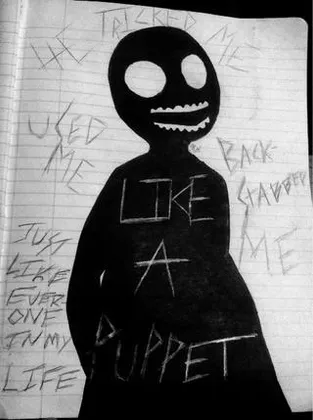 HE TRICKED ME
USED
ME
BACK-
STABBED
ME
LIKE
A
PUPPET
JUST
LIKE
EVERY
ONE
IN MY
LIFE